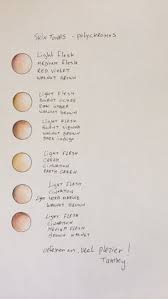 Skin Tones - polychromos
Light Flesh
Medium Flesh
Red Violet
Walnut Brown
Light Flesh
Burnt Ochre
Walnut Brown
Light Flesh
Burnt Sienna
Walnut Brown
Dark Indigo
Light Flesh
Cream
Cinnamon
Earth Green
Light Flesh
Cinnamon
Walnut Brown
Light Flesh
Cinnamon
Medium Flesh
Brown
veel plezier!